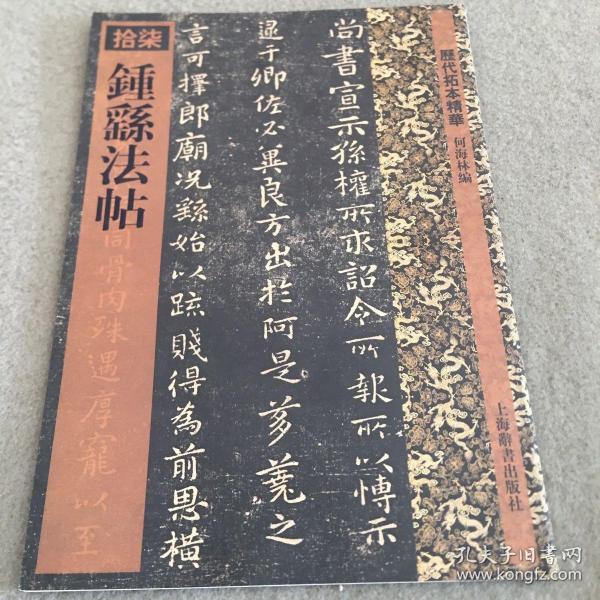 歷代拓本精華
何海林編
上海辭書出版社
尚書宣示孫權所求詔令所報所以博示
逮于卿佐必冀良方出於阿是芻蕘之
言可擇郎廟況繇始以疏賤得為前恩橫
拾柒
鍾繇法帖
同骨肉殊遇厚寵以至
孔夫子旧书网
www.kongfz.com